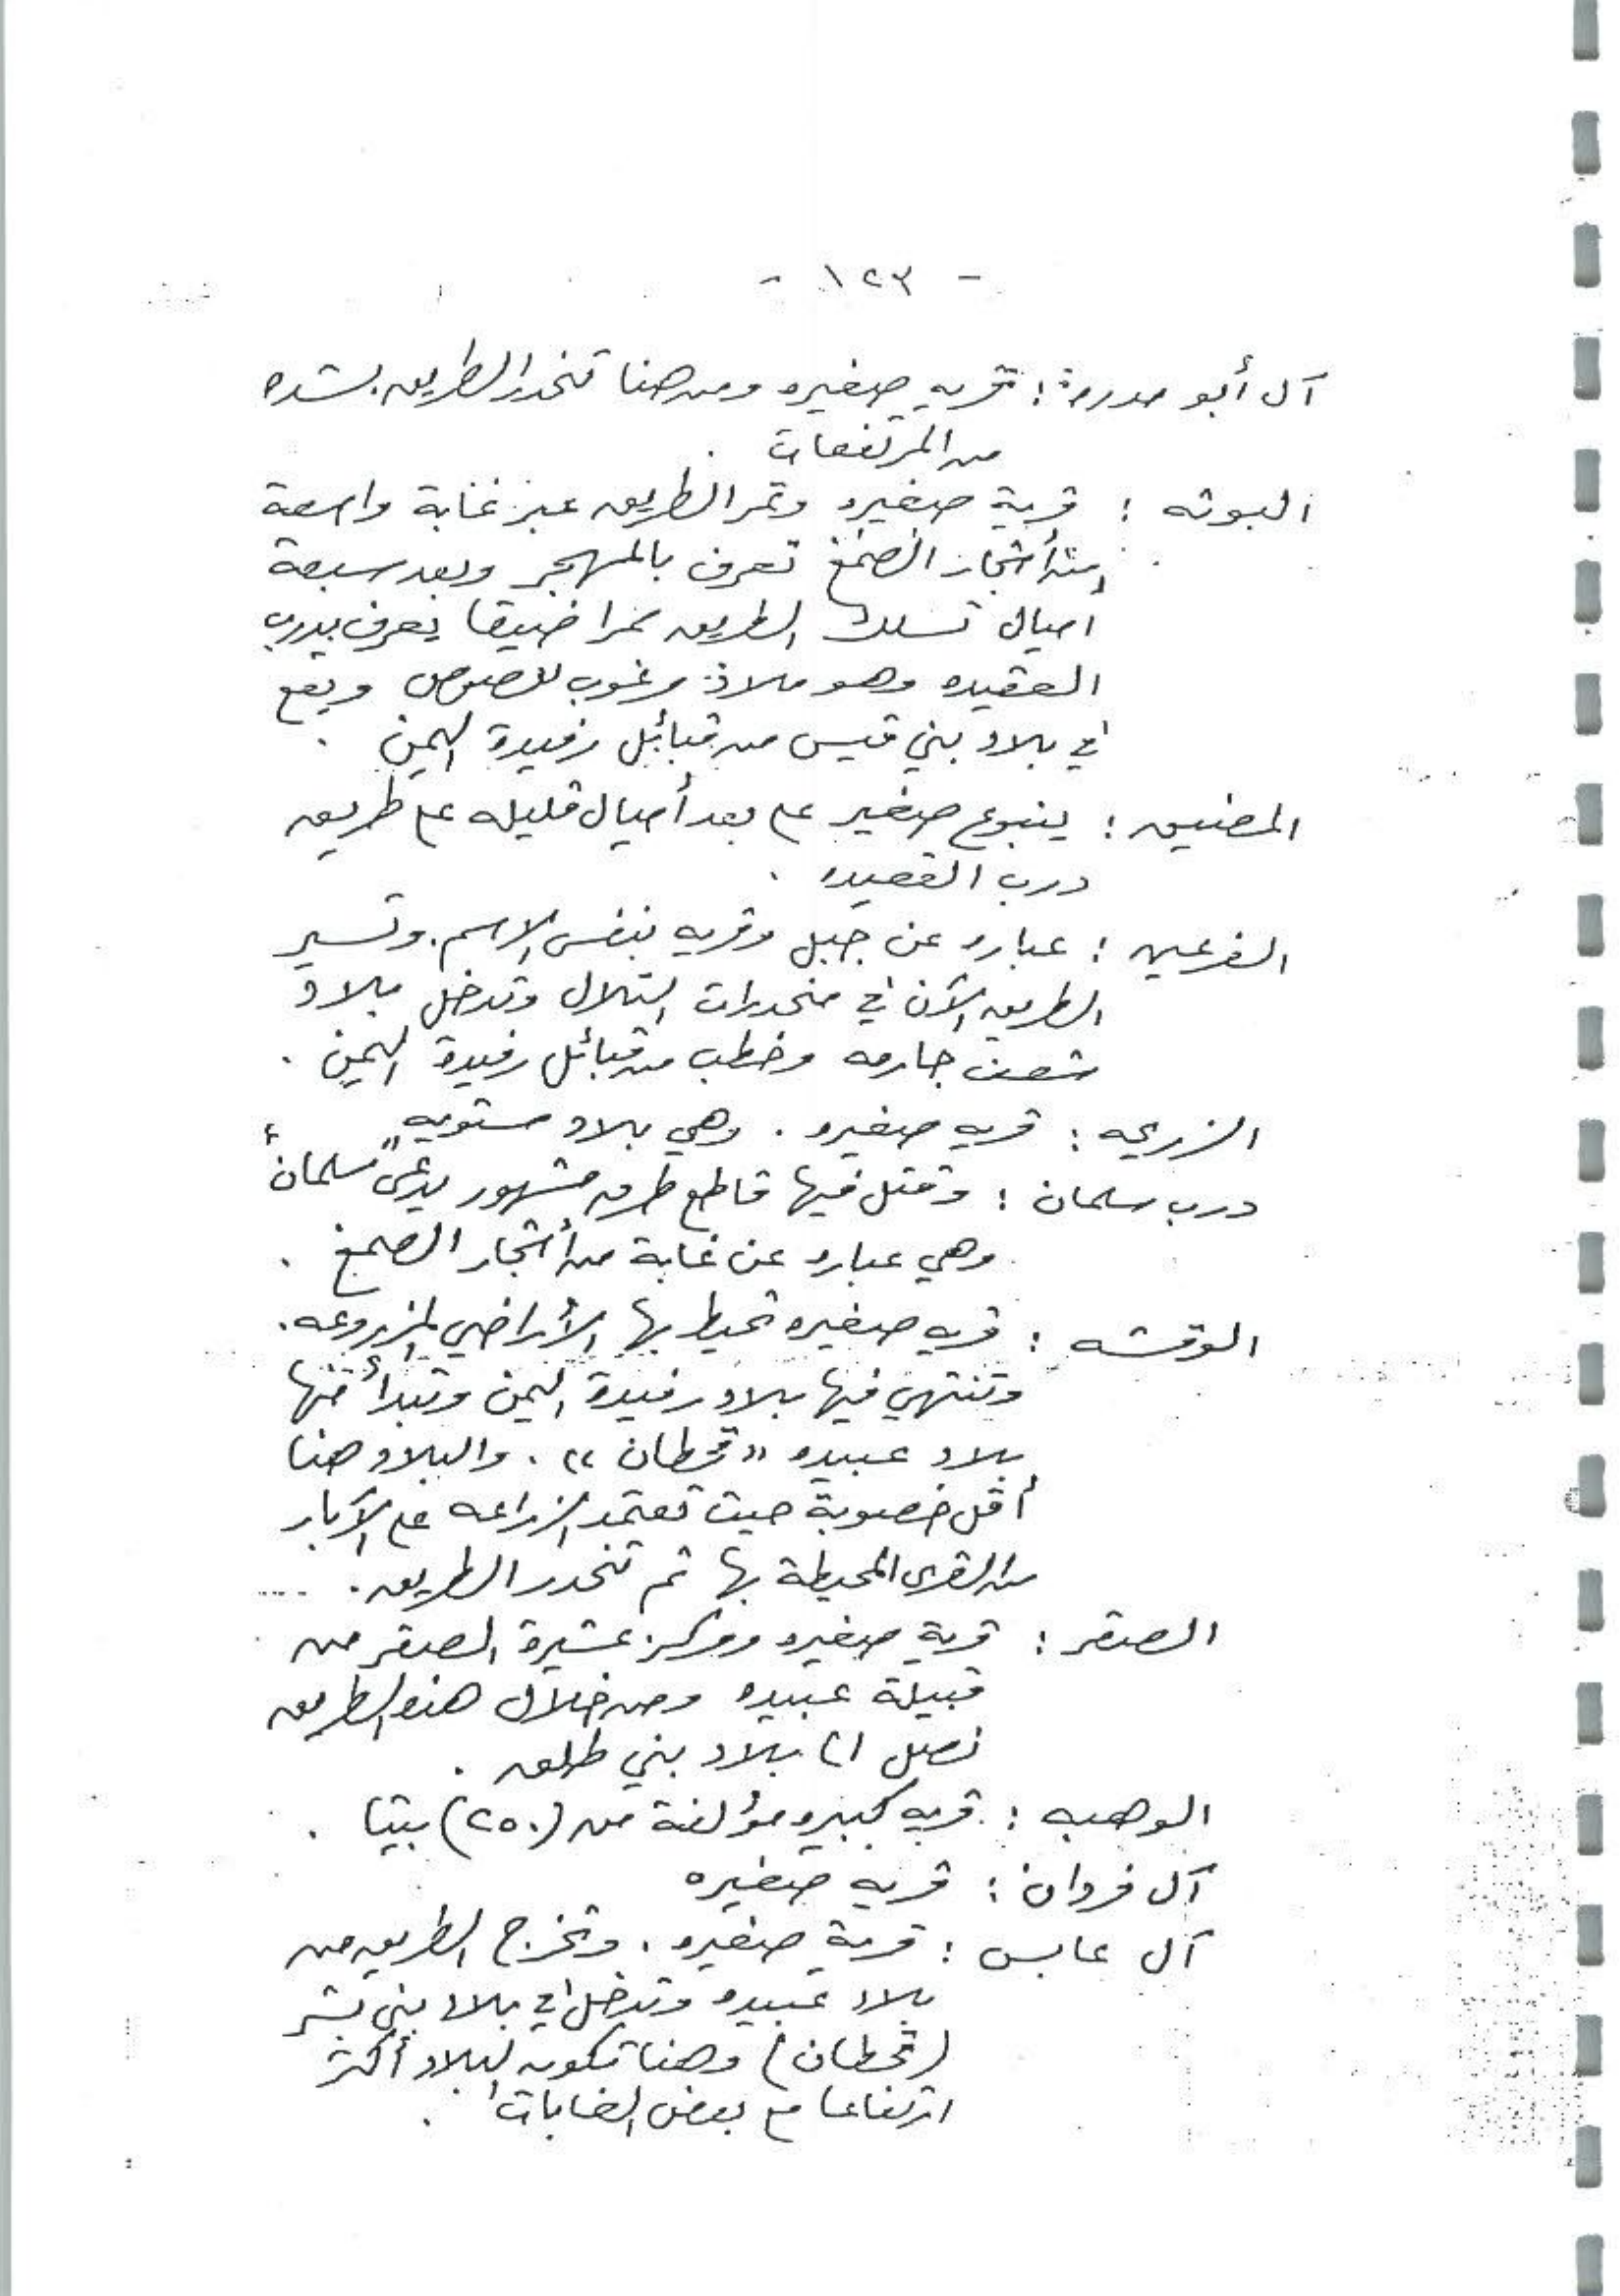 - ١٢٣ -
آل أبو مدرة : قريه صغيره ومن هنا تنحدر الطريق بشده
من المرتفعات .
البوته : قرية صغيره وتمر الطريق عبر غابة واسعة
من أشجار الصمغ تعرف بالمهجر وبعد سبعة
اميال تسلك الطريق ممرا ضيقا يعرف بدرب
العقيده وهو ملاذ مرغوب للصوص ويقع
في بلاد بني قيس من قبائل رفيدة اليمن .
المضيق : ينبوع صغير على بعد أميال قليله على طريق
درب العقيده .
الفرعين : عباره عن جبل وقريه بنفس الاسم . وتسير
الطريق الآن في منحدرات التلال وتدخل بلاد
شعف جارمه وخطب من قبائل رفيدة اليمن .
الزريحه : قريه صغيره . وهي بلاد مستويه
درب سلمان : وقتل فيها قاطع طرق مشهور يدعى "سلمان"
وهي عباره عن غابة من أشجار الصمغ .
الوقشه : قريه صغيره تحيط بها الأراضي المزروعه .
وتنتهي فيها بلاد رفيدة اليمن وتبدأ منها
بلاد عبيده « قحطان » . والبلاد هنا
أقل خصوبة حيث تعتمد الزراعه على الآبار
من القرى المحيطة بها ثم تنحدر الطريق .
الصقر : قرية صغيره ومركز عشيرة الصقر من
قبيلة عبيده ومن خلال هذه الطريق
نصل الى بلاد بني طلق .
الوهبه : قريه كبيره مؤلفة من (٢٥٠) بيتا .
آل فروان : قريه صغيره
آل عابس : قرية صغيره . وتخرج الطريق من
بلاد عبيده وتدخل في بلاد بني بشر
(قحطان) وهنا تكون البلاد أكثر
ارتفاعا مع بعض الغابات .